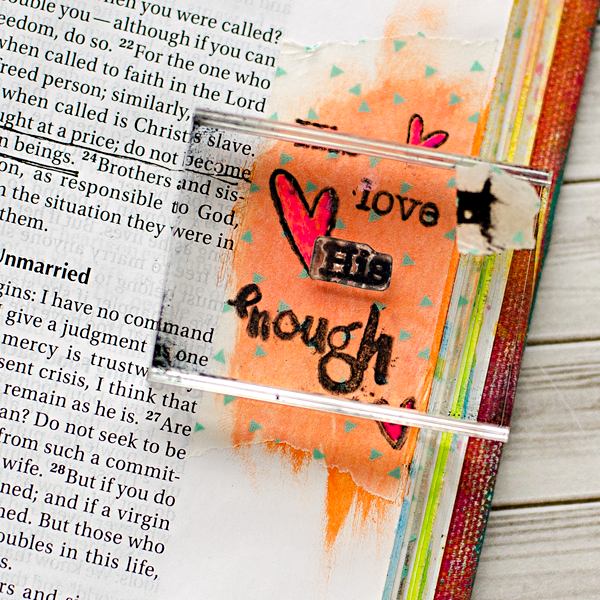 hen you were called?
ouble you—although if you can
eedom, do so. 22For the one who
when called to faith in the Lord
freed person; similarly,
when called is Christ's slave.
ught at a price; do not become
n beings. 24Brothers and sis-
on, as responsible to God,
n the situation they were in
them.
Unmarried
gins: I have no command
give a judgment as one
mercy is trustw
sent crisis, I think that
remain as he is. 27Are
an? Do not seek to be
from such a commit-
wife. 28But if you do
ned; and if a virgin
ned. But those who
oubles in this life,
s.
rs and si
His
love
His
enough